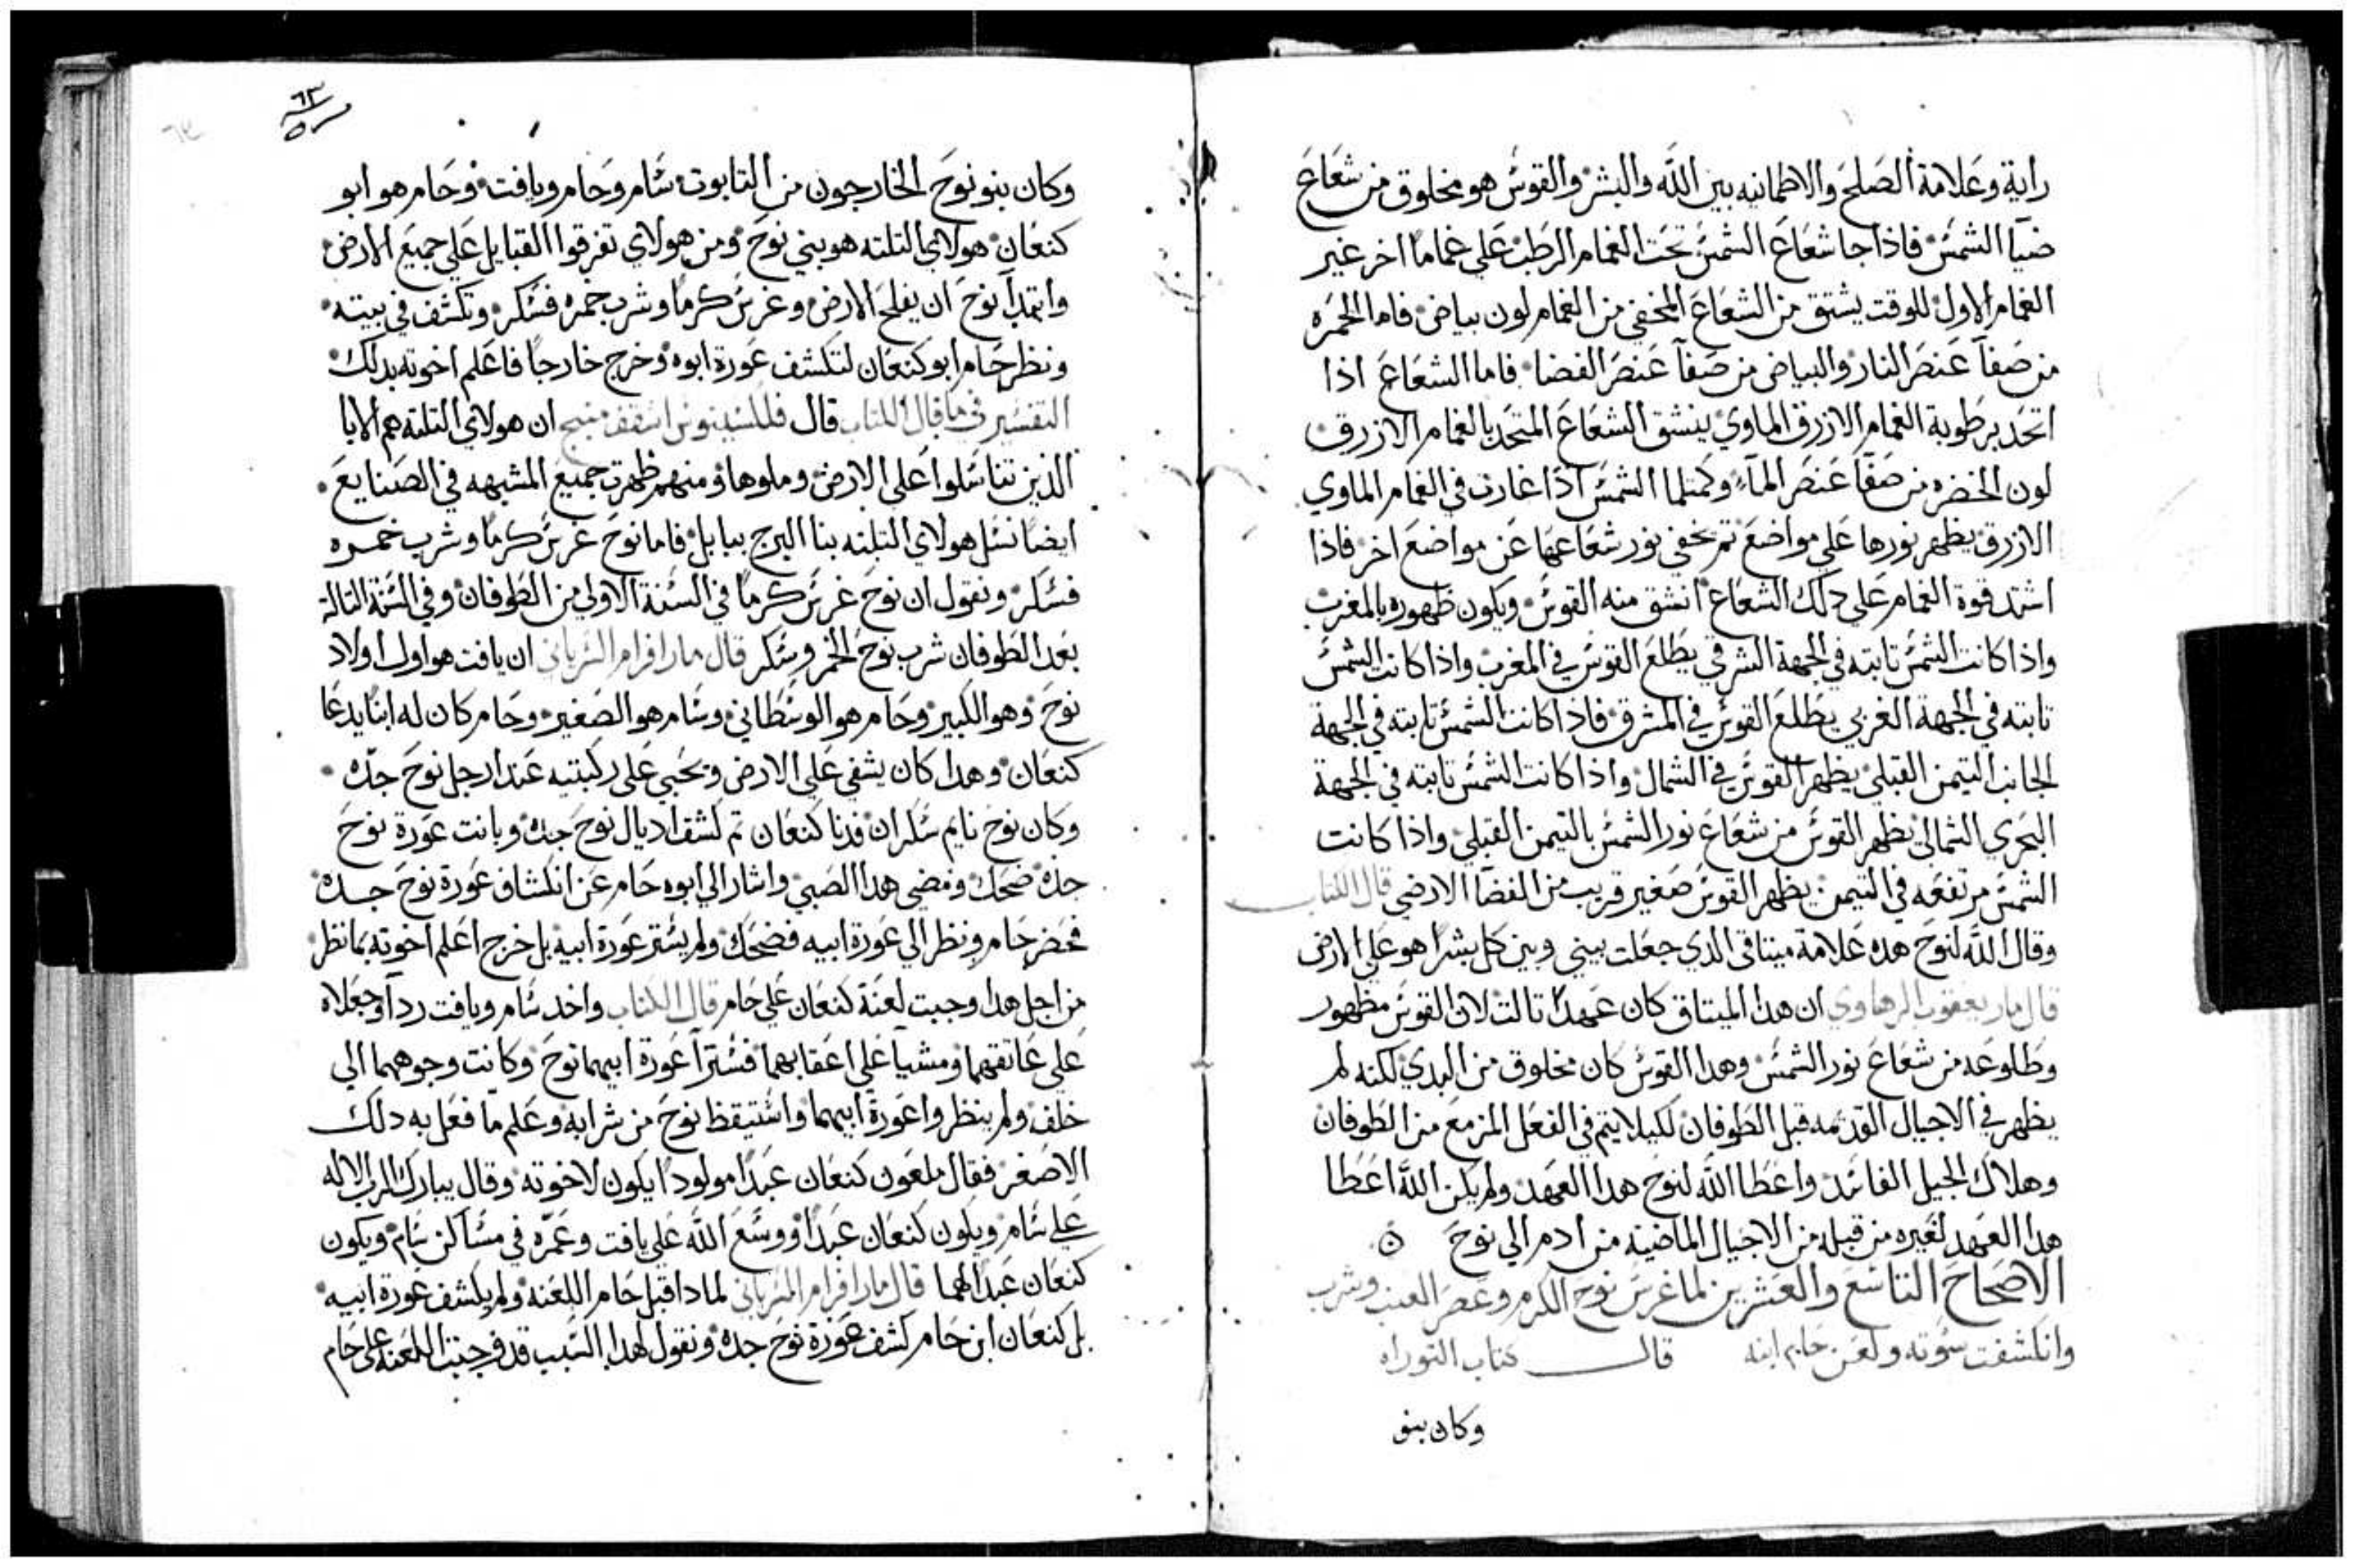 راية وعلامة الصلح والاطمانيه بين الله والبشر والقوس هو مخلوق من شعاع
ضيا الشمس فاذا جا شعاع الشمس تحت الغمام الرطب علي غماما اخر غير
الغمام الاول للوقت يشتق من الشعاع المخفي من الغمام لون بياض فاما الحمره
من صفا عنصر النار والبياض من صفا عنصر الفضا فاما الشعاع اذا
اتحد برطوبة الغمام الازرق الماوي ينشق الشعاع المتحد بالغمام الازرق
لون الخضره من صفا عنصر الما وكمتلما الشمس اذا غارت في الغمام الماوي
الازرق يظهر نورها علي مواضع تم تخفي نور شعاعها عن مواضع اخر فاذا
اشتد قوة الغمام علي دلك الشعاع انشق منه القوس ويكون ظهوره بالمغرب
واذا كانت الشمس تابته في الجهة الشرقي يطلع القوس في المغرب واذا كانت الشمس
تابته في الجهة الغربي يطلع القوس في المشرق فاذا كانت الشمس تابته في الجهة
الجانب التيمن القبلي يظهر القوس في الشمال واذا كانت الشمس تابته في الجهة
البحري الشمالي يظهر القوس من شعاع نور الشمس بالتيمن القبلي واذا كانت
الشمس مرتفعه في التيمن يظهر القوس صغير قريب من الفضا الارضي قال الكتاب
وقال الله لنوح هده علامة ميتاقي الدي جعلت بيني وبين كل بشرا هو علي الارض
قال مار يعقوب الرهاوي ان هدا الميتاق كان عهدا تالت لان القوس مظهور
وطلوعه من شعاع نور الشمس وهدا القوس كان مخلوق من البدي لكنه لم
يظهر في الاجيال القديمه قبل الطوفان لكيلا يتم في الفعل المزمع من الطوفان
وهلاك الجيل الفاسد واعطا الله لنوح هدا العهد ولم يكن الله اعطا
هدا العهد لغيره من قبله من الاجيال الماضية من ادم الي نوح ه
الاصحاح التاسع والعشرين لما غرس نوح الكرم وعصر العنب وشرب
وانكشفت سوته ولعن حام ابنه قال كتاب التوراه
وكان بنو
٦٣
وكان بنو نوح الخارجون من التابوت سام وحام ويافت وحام هو ابو
كنعان هولاي التلته هو بني نوح ومن هولاي تفرقوا القبايل علي جميع الارض
وابتدا نوح ان يفلح الارض وغرس كرما وشرب خمره فسكر وتكشف في بيته
ونظر حام ابو كنعان لتكشف عورة ابوه وخرج خارجا فاعلم اخوته بدلك
التفسير في ما قال الكتاب قال فللسينوس اسقف منبج ان هولاي التلته هم الابا
الذين تناسلوا علي الارض وملوها ومنهم ظهرت جميع المشبهه في الصنايع
ايضا نسل هولاي التلته بنا البرج ببابل فاما نوح غرس كرما وشرب خمره
فسكر ونقول ان نوح غرس كرما في السنة الاولي من الطوفان وفي السنة التالتة
بعد الطوفان شرب نوح الخمر وسكر قال مار افرام السرياني ان يافت هو اول اولاد
نوح وهو الكبير وحام هو الوسطاني وسام هو الصغير وحام كان له ابنا يدعا
كنعان وهدا كان يشفي علي الارض ويحبي علي ركبتيه عند ارجل نوح جده
وكان نوح نايم سكران فدنا كنعان تم كشف اديال نوح جده وبانت عورة نوح
جده ضحك ومضي هدا الصبي واشار الي ابوه حام عن انكشاف عورة نوح جده
فحضر حام ونظر الي عورة ابيه فضحك ولم يستر عورة ابيه بل خرج اعلم اخوته بما نظر
من اجل هدا وجبت لعنة كنعان علي حام قال الكتاب واخد سام ويافت ردا وجعلاه
علي عاتقهما ومشيا علي اعقابهما فسترا عورة ابيهما نوح وكانت وجوههما الي
خلف ولم ينظروا عورة ابيهما واستيقظ نوح من شرابه وعلم ما فعل به دلك
الاصغر فقال ملعون كنعان عبدا مولودا يكون لاخوته وقال يبارك الرب الاله
علي سام ويكون كنعان عبدا ووسع الله علي يافت وعمره في مساكن سام ويكون
كنعان عبدا لهما قال مار افرام السرياني لمادا قبل حام اللعنه ولم يكشف عورة ابيه
بل كنعان ابن حام كشف عورة نوح جده ونقول لهدا السبب قد وجبت اللعنه علي حام